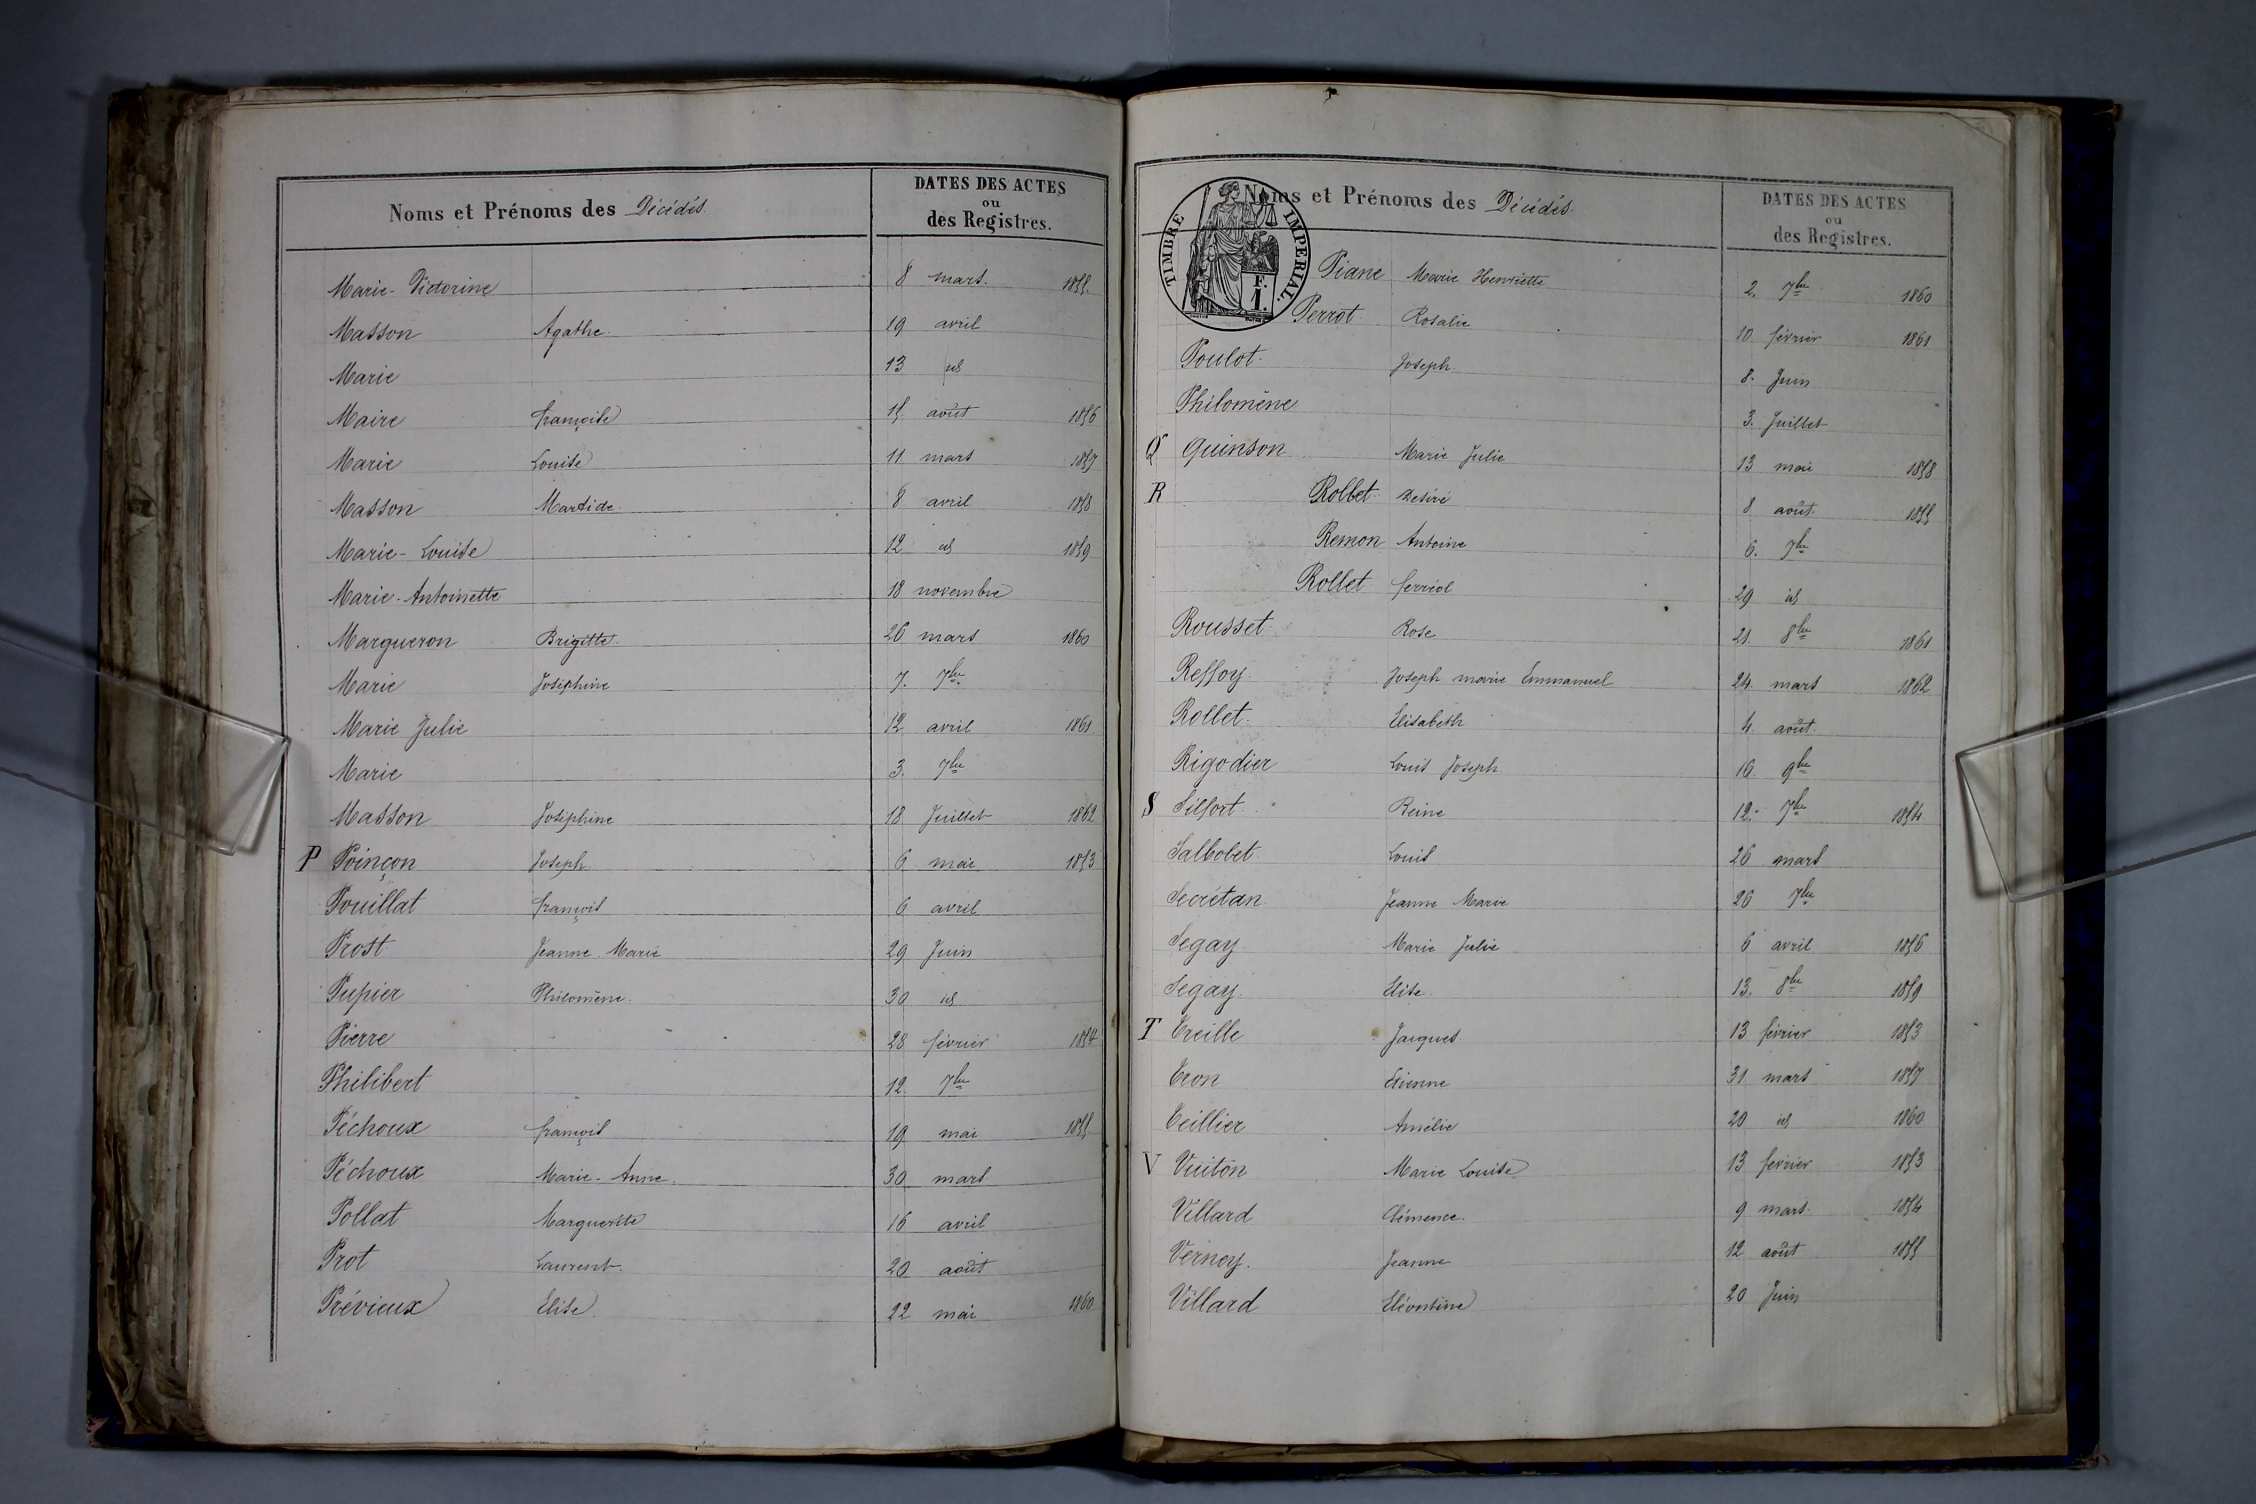 Noms et Prénoms des Décédés. DATES DES ACTES
ou
des Registres.
Marie-Victorine 8 mars. 1855.
Masson Agathe. 19 avril
Marie 13 id
Maire françoise 15 août 1856
Marie Louise 11 mars 1857
Masson 8 avril 1858
Marie-Louise 12 id 1859
Marie-Antoinette 18 novembre
Margueron Brigitte. 26 mars 1860
Marie Joséphine 7. 7bre
Marie Julie 12 avril 1861
Marie 3. 7bre
Masson Joséphine 18 Juillet 1862
P Poinçon Joseph 6 mai 1853
Pouillat françois 6 avril
Prost Jeanne Marie 29 Juin
Pupier Philomène. 30 id
Pierre 28 février 1854
Philibert 12. 7bre
Péchoux françois 19 mai 1855
Péchoux Marie-Anne. 30 mars
Pollat Marguerite 16 avril
Prot Laurent. 20 août
Prévieux Elise. 22 mai 1860
TIMBRE IMPERIAL.
F.
I.
Noms et Prénoms des Décédés. DATES DES ACTES
ou
des Registres.
Piane Marie Henriette 2. 7bre 1860
Perrot Rosalie 10 février 1861
Poulot. Joseph 8. Juin
Philomène 3. Juillet
Q Quinson Marie Julie 13 mai 1858
R Rollet Desiré 8 août. 1855
Remon Antoine 6. 7bre
Rollet ferréol 29 id
Rousset Rose 21 8bre 1861
Reffoy Joseph marie Emmanuel 24 mars 1862
Rollet. Elisabeth 4. août.
Rigodier Louis Joseph 16 9bre
S Silfort. Reine 12. 7bre 1854
Salbobet Louis 26 mars
Secrétan Jeanne Marie 26 7bre
Segay Marie Julie 6 avril 1856
Segay. Elise. 13. 8bre 1859
T Treille Jacques 13 février 1853
Tron Etienne 31 mars 1857
Teillier Amélie 20 id 1860
V Vuiton Marie Louise 13 février 1853
Villard Clémence. 9 mars. 1854
Vernoy. Jeanne 12 août 1855
Villard Eléontine 20 Juin